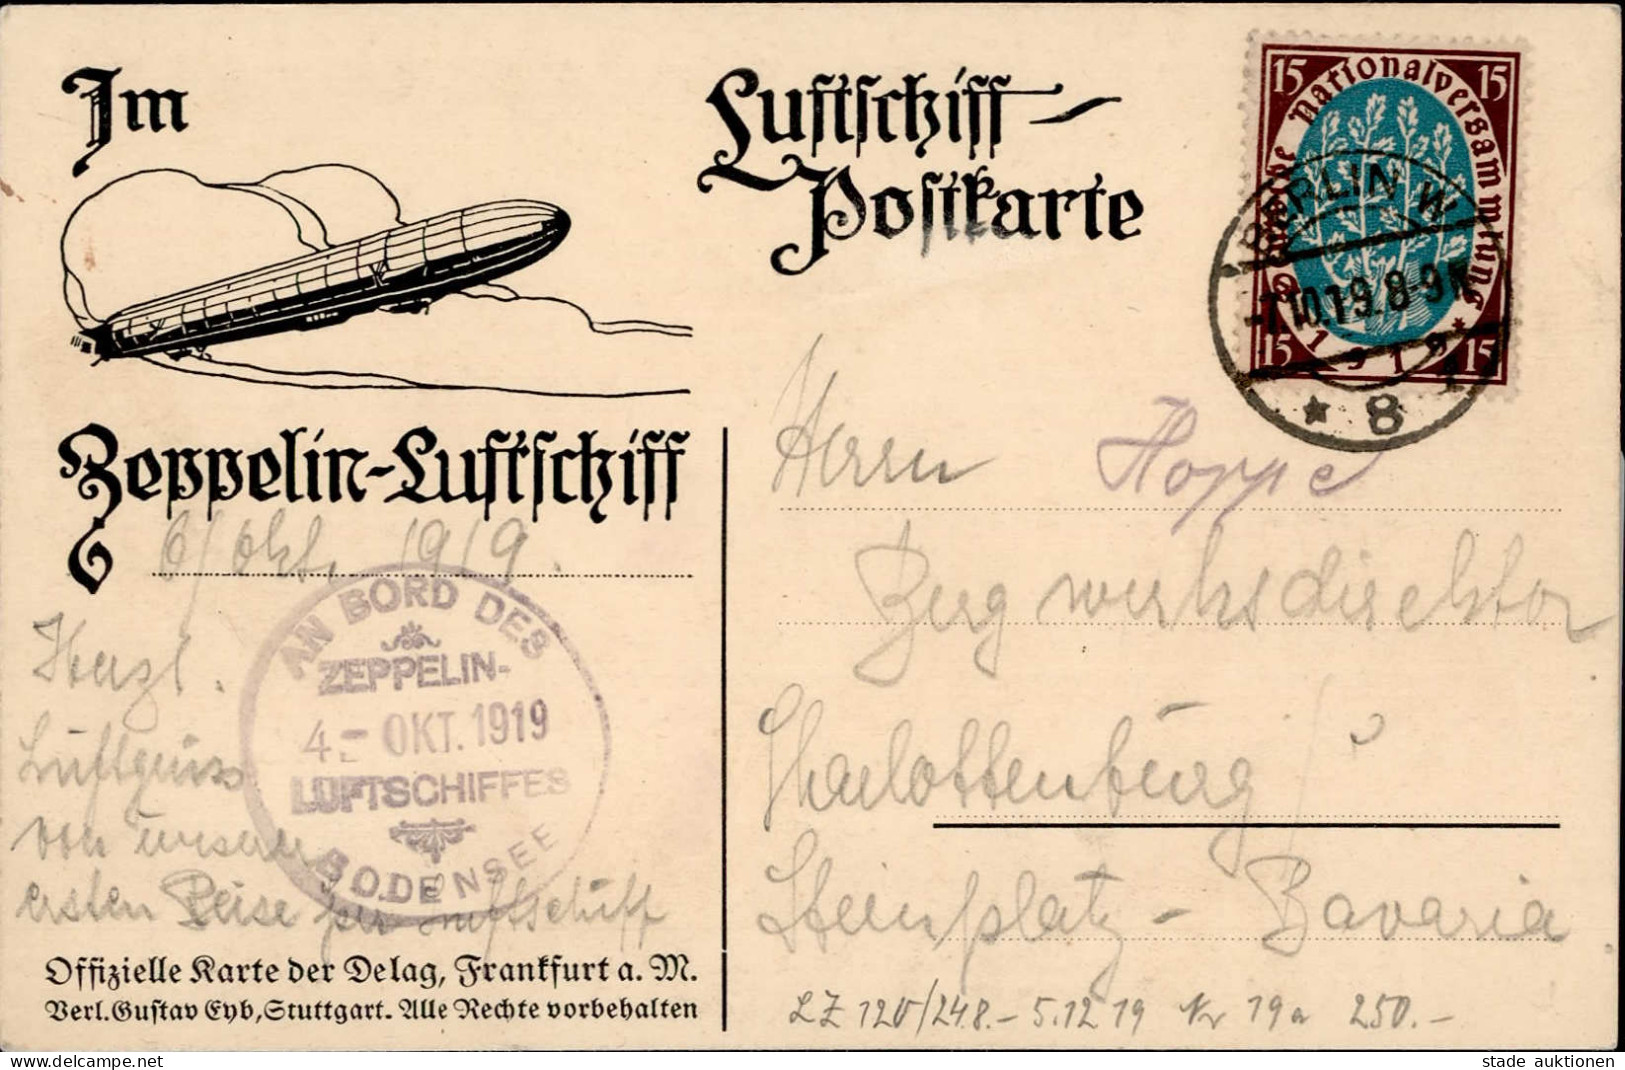 Im
Zeppelin-Luftschiff
Luftschiff-
Postkarte
15 15
Deutsche Nationalversammlung
* 1919 *
15 15
BERLIN W
-7.10.19. 8-9 N
* 8
6/Okt. 1919.
AN BORD DES
ZEPPELIN-
4 - OKT. 1919
LUFTSCHIFFES
BODENSEE
Herzl.
Luftgruss
von unserer
ersten Reise per Luftschiff
Offizielle Karte der Delag, Frankfurt a. M.
Verl. Gustav Eyb, Stuttgart. Alle Rechte vorbehalten
Herrn Hoppe
Bergwerksdirektor
Charlottenburg
Steinplatz - Bavaria
LZ 120/248.- 5.12.19 Nr 19a 250.-
stade auktionen